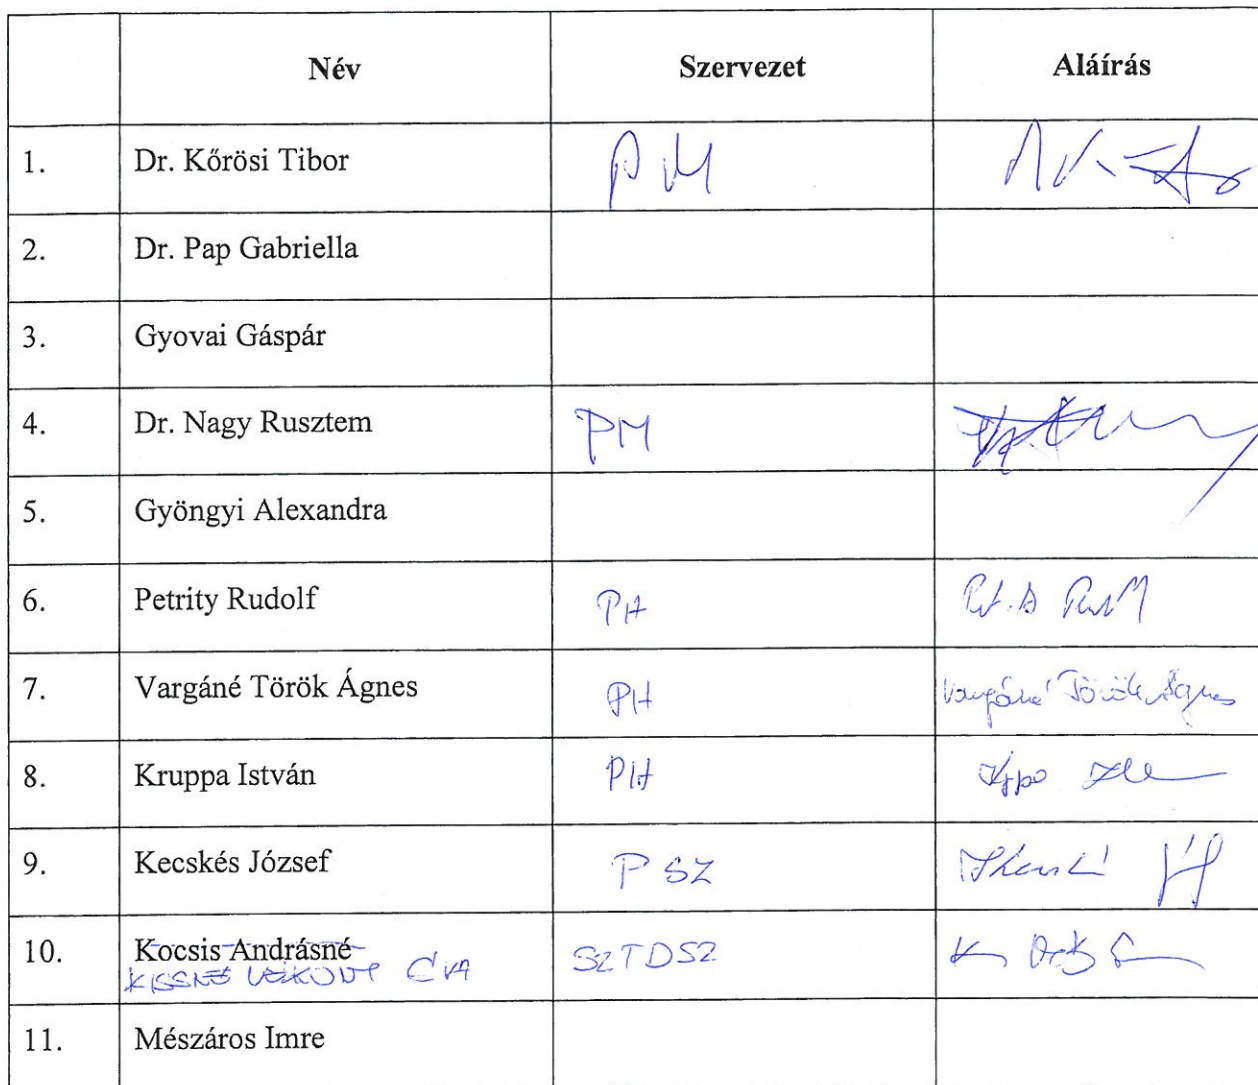 Név Szervezet Aláírás
1. Dr. Kőrösi Tibor PM
2. Dr. Pap Gabriella
3. Gyovai Gáspár
4. Dr. Nagy Rusztem PM
5. Gyöngyi Alexandra
6. Petrity Rudolf PH
7. Vargáné Török Ágnes PH Vargáné Török Ágnes
8. Kruppa István PH
9. Kecskés József P SZ
10. Kocsis Andrásné SZTDSZ
KISSNÉ ÉVA
11. Mészáros Imre